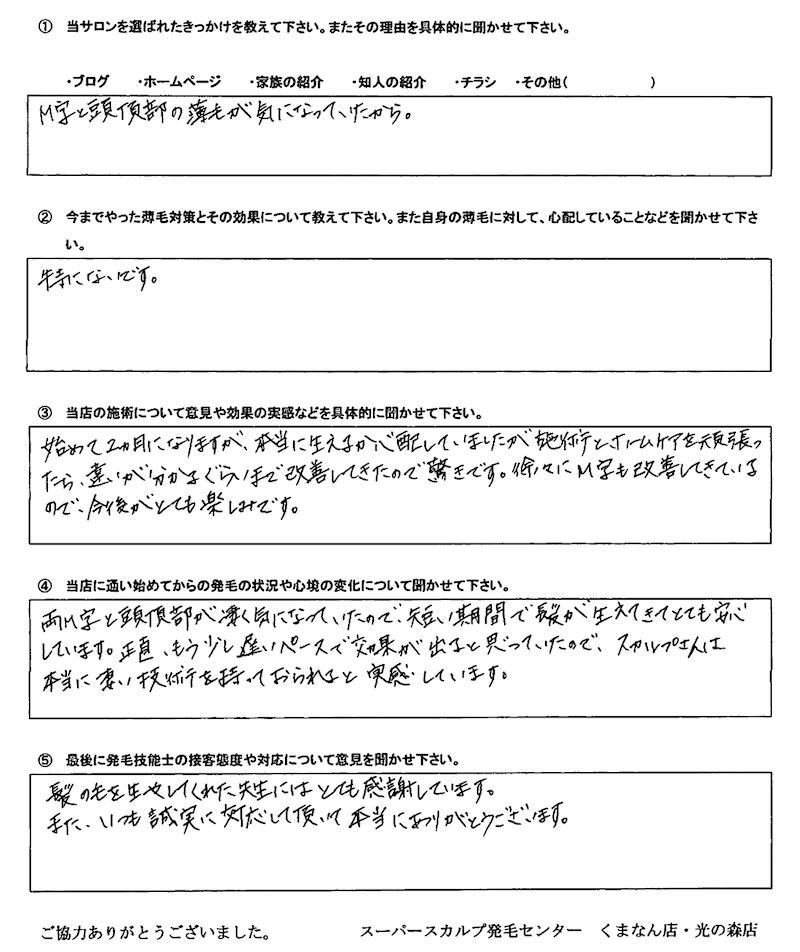 ① 当サロンを選ばれたきっかけを教えて下さい。またその理由を具体的に聞かせて下さい。
・ブログ ・ホームページ ・家族の紹介 ・知人の紹介 ・チラシ ・その他( )
M字と頭頂部の薄毛が気になっていたから。
② 今までやった薄毛対策とその効果について教えて下さい。また自身の薄毛に対して、心配していることなどを聞かせて下さ
い。
特にないです。
③ 当店の施術について意見や効果の実感などを具体的に聞かせて下さい。
始めて2ヵ月になりますが、本当に生えるか心配していましたが施術とホームケアを頑張っ
たら、違いが分かるぐらいまで改善してきたので驚きです。徐々にM字も改善してきている
ので、今後がとても楽しみです。
④ 当店に通い始めてからの発毛の状況や心境の変化について聞かせて下さい。
両M字と頭頂部が凄く気になっていたので、短い期間で長髪が生えてきてとても安心
しています。正直、もう少し遅いペースで効果が出ると思っていたので、スカルプさんは
本当に凄い技術を持っておられると実感しています。
⑤ 最後に発毛技能士の接客態度や対応について意見を聞かせ下さい。
髪の毛を生やしてくれた先生にはとても感謝しています。
また、いつも誠実に対応して頂いて本当にありがとうございます。
ご協力ありがとうございました。 スーパースカルプ発毛センター くまなん店・光の森店